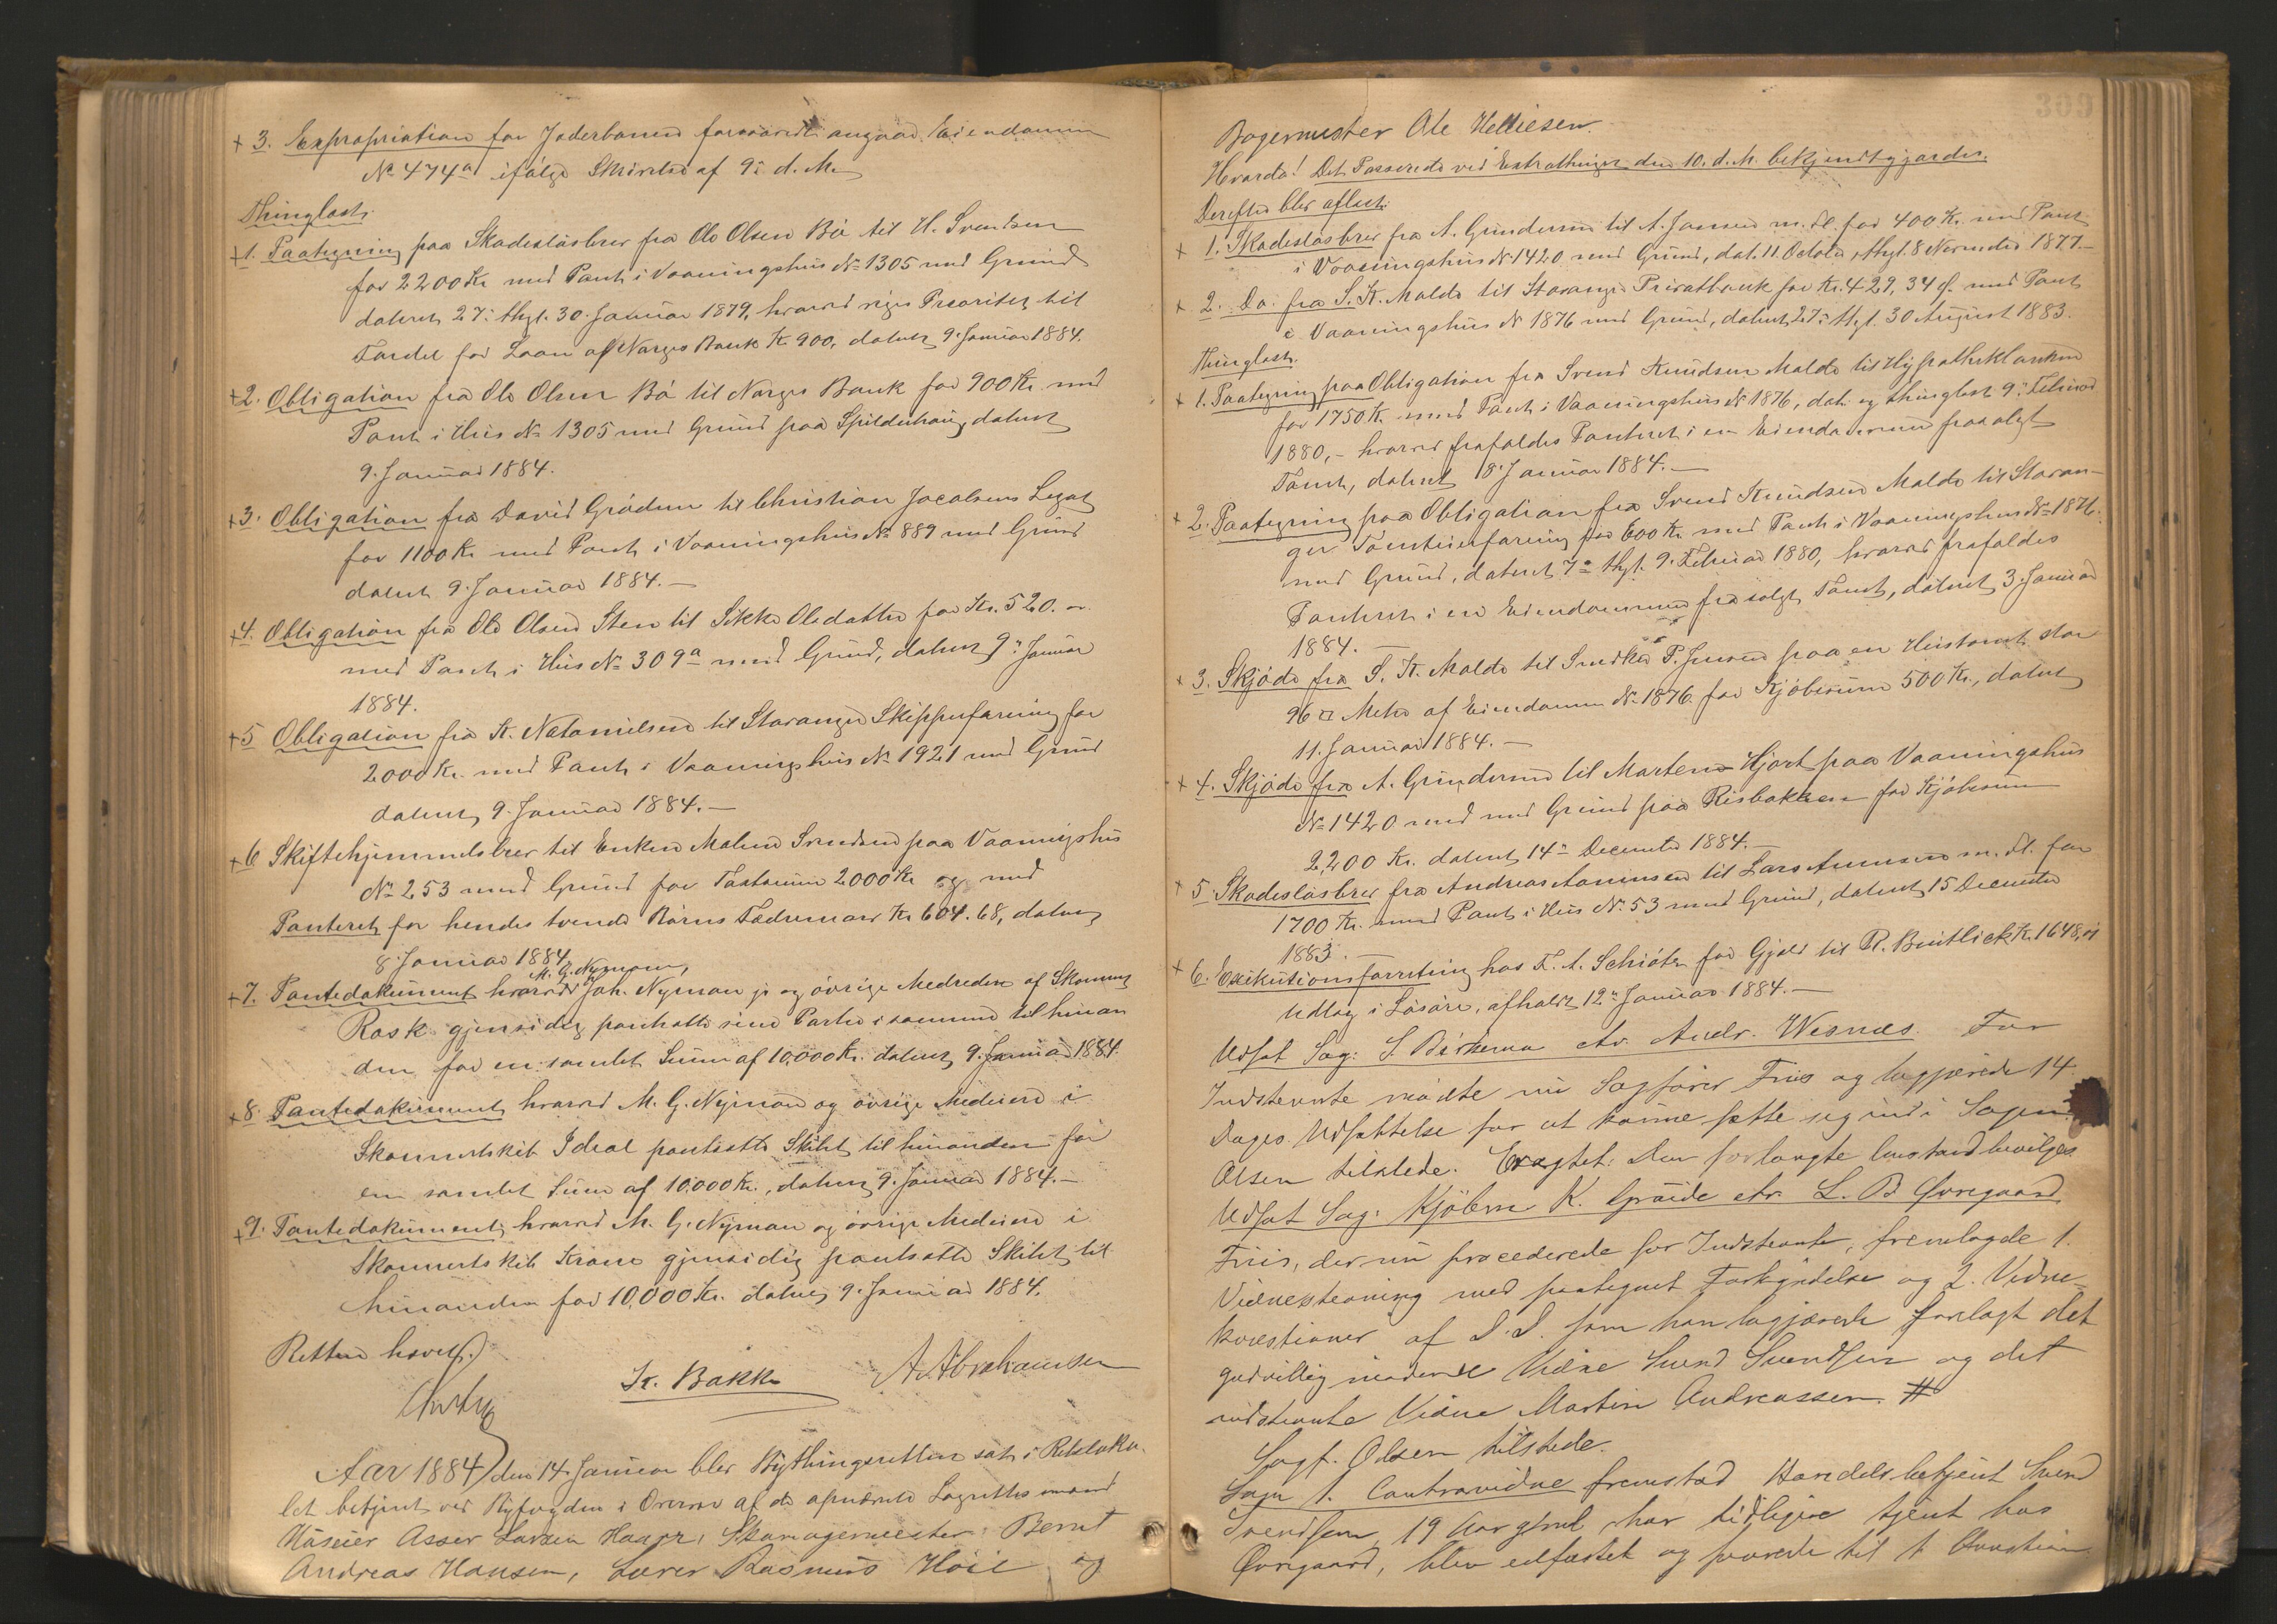 + 3. Expropriation for Jæderbanen forsaavidt angaar Eiendommen
No 474a ifølge Skrivelse af 9: d. M.
Thinglæst:
+1. Paategning paa Skadesløsbrev fra Ole Olsen Bø til H. Svendsen
for 2200 Kr med Pant i Vaaningshus No 1305 med Grund
dateret 27: thgl. 30. Januar 1879, hvorved viger Prioritet til
Fordel for Laan af Norges Bank Kr 900, dateret 9. Januar 1884.
+2. Obligation fra Ole Olsen Bø til Norges Bank for 900 Kr. med
Pant i Hus No 1305 med Grund paa Spilderhaug, dateret
9. Januar 1884.
+3. Obligation fra David Grødem til Christian Jacobsens Legat
for 1100 Kr med Pant i Vaaningshus No 889 med Grund
dateret 9. Januar 1884.—
+4. Obligation fra Ole Olsen Sten til Sikke Olsdatter for Kr. 520.
med Pant i Hus No 309a med Grund, dateret 9: Januar
1884.
+5 Obligation fra K. Natanielsen til Stavanger Skipperforening for
2000 Kr. med Pant i Vaaningshus No 1921 med Grund
dateret 9. Januar 1884.—
+6 Skiftehjemmelsbrev til Enken Malene Svendsen paa Vaaningshus
No 253 med Grund for Taxtsum 2000 Kr og med
Panteret for hendes tvende Børns Fædrenearv Kr 604.68, dateret
8 Januar 1884
M. G. Nyman,
+7. Pantedokument hvorved Joh. Nyman jr og øvrige Medredere af Skonnert
Rask gjensidig pantsatte sine Parter i samme til hinan
den for en samlet Sum af 10,000 Kr. dateret 9. Januar 1884.
+8. Pantedokument hvorved M. G. Nyman og øvrige Medeiere i
Skonnertskib Ideal pantsatte Skibet til hinanden for
en samlet Sum af 10,000 Kr., dateret 9. Januar 1884.—
+9. Pantedokument hvorved M. G. Nyman og øvrige Medeiere i
Skonnertskib Krone gjensidig pantsatte Skibet til
hinanden for 10,000 Kr. dateret 9. Januar 1884.
Retten hævet.
K. Bakke A. Abrahamsen
Aar 1884 den 14. Januar blev Bythingsretten sat i Retsloka
let betjent ved Byfogden i Overvær af de opnævnte Lagrettesmænd
Huseier Asser Larsen Haape, Skomagermester Bernt
Andreas Hansen, Lærer Rasmus Høie og
309
Bagermester Ole Helliesen.
Hvorda! Det Passerede ved Extrathinget den 10. d. M. bekjendtgjordes.
Derefter blev aflæst:
+ 1. Skadesløsbrev fra A. Gundersen til A. Jansen m. fl. for 400 Kr. med Pant
i Vaaningshus No 1420 med Grund, dat. 11. October, thgl. 8 November 1877.—
+ 2. Do: fra S. K. Malde til Stavanger Privatbank for Kr. 429,34 Ø. med Pant
i Vaaningshus No 1876 med Grund, dateret 27: thgl. 30 August 1883.
Thinglæst:
+ 1. Paategning paa Obligation fra Svend Knudsen Malde til Hypothekbanken
for 1750 Kr. med Pant i Vaaningshus No 1876, dat. og thinglæst 9: Februar
1880,- hvorved frafaldes Panteret i en Eiendommen frasolgt
Tomt, dateret 8: Januar 1884.—
+ 2. Paategning paa Obligation fra Svend Knudsen Malde til Stavan-
ger Tomteforening for 600 Kr. med Pant i Vaaningshus No 1876
med Grund, dateret 7: thgl. 9. Februar 1880, hvorved frafaldes
Panteret i en Eiendommen frasolgt Tomt, dateret 3: Januar
1884.—
+ 3. Skjøde fra S. K. Malde til P. Jensen paa en Hustomt stor
96 □ Meter af Eiendommen No 1876. for Kjøbesum 500 Kr., dateret
11. Januar 1884.—
+ 4. Skjøde fra A. Gundersen til Marten Hjort paa Vaaningshus
No 1420 med med Grund paa Risbakken for Kjøbesum
2,200 Kr. dateret 14: December 1884.—
+ 5 Skadesløsbrev fra Andreas Aanensen til Lars Aanensen m. fl. for
1700 Kr. med Pant i Hus No. 53 med Grund, dateret 15 December
1883.—
+ 6. Exekutionsforretning hos F. A. Schiøtz for Gjæld til R. Kr. 1648,01
Udlæg i Løsøre, afholdt 12: Januar 1884.—
Udsat Sag: S. Birkeren ctr. Andr. Wesnæs. For
Indstevnte mødte nu Sagfører Friis og begjærede 14
Dages Udsættelse for at kunne sætte sig ind i Sagen.
Olsen tilstede. Eragtet: Den forlangte Anstand bevilges
Udsat Sag: Kjøbm K. Graide ctr. L. B Øvregaard
Friis, der nu procederede for Indstevnte, fremlagde 1.
Vidnestevning med paategnet Forkyndelse og 2. Vidne-
kvæstioner af D. D. som han begjærede forelagt det
godvillig mødende Vidne Svend Svendsen og det
indstevnte Vidne Martin Andreassen. #
Sagf. Olsen tilstede.
Som 1. Contravidne fremstod Handelsbetjent Svend
Svendsen, 19 Aar gml. har tidligere tjent hos
Øvregaard, blev edfæstet og svarede til 1 Qvæstion